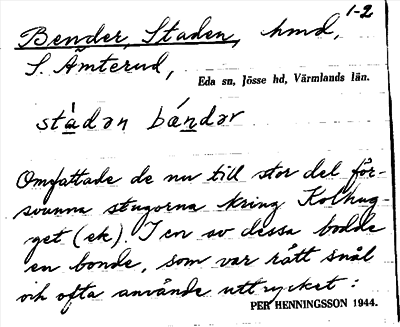 1-2
Bender, Staden, hmd,
S. Ämterud,
Eda sn, Jösse hd, Värmlands län.
stádən bándər
Omfattade de nu till stor del för-
svunna stugorna kring Kolhug-
get (ek). I en av dessa bodde
en bonde, som var rått snål
och ofta använde uttrycket:
PER HENNINGSSON 1944.